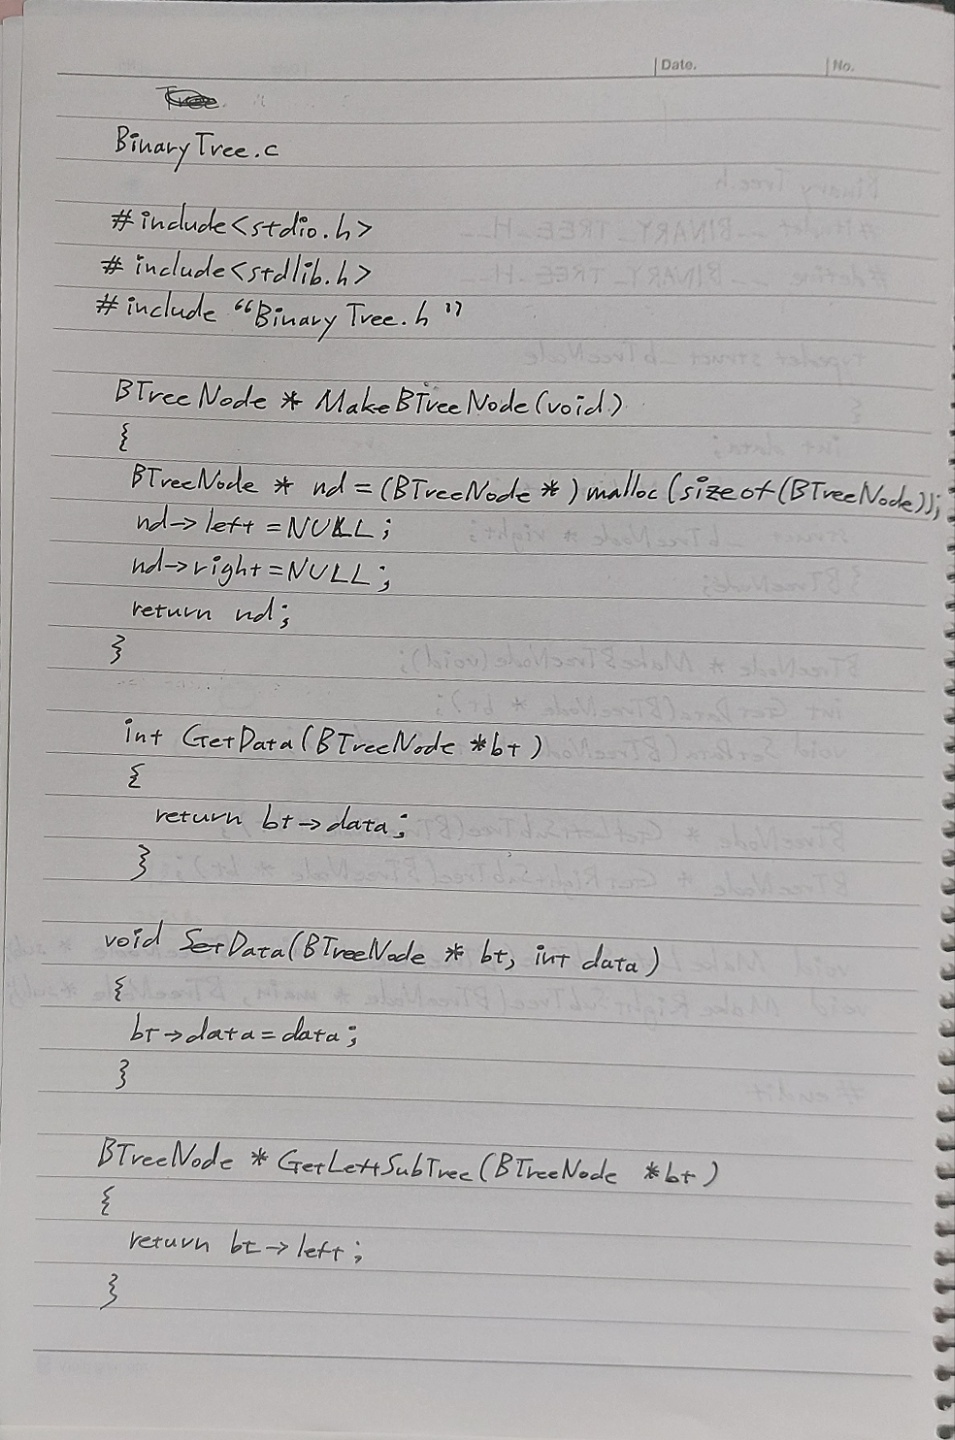 Date.
No.
BinaryTree.c
#include<stdio.h>
#include<stdlib.h>
#include “BinaryTree.h”
BTreeNode * MakeBTreeNode(void)
{
BTreeNode * nd = (BTreeNode *) malloc(sizeof(BTreeNode));
nd->left = NULL;
nd->right = NULL;
return nd;
}
int GetData(BTreeNode *bt)
{
return bt->data;
}
void SetData(BTreeNode * bt, int data)
{
bt->data = data;
}
BTreeNode * GetLeftSubTree(BTreeNode *bt)
{
return bt->left;
}